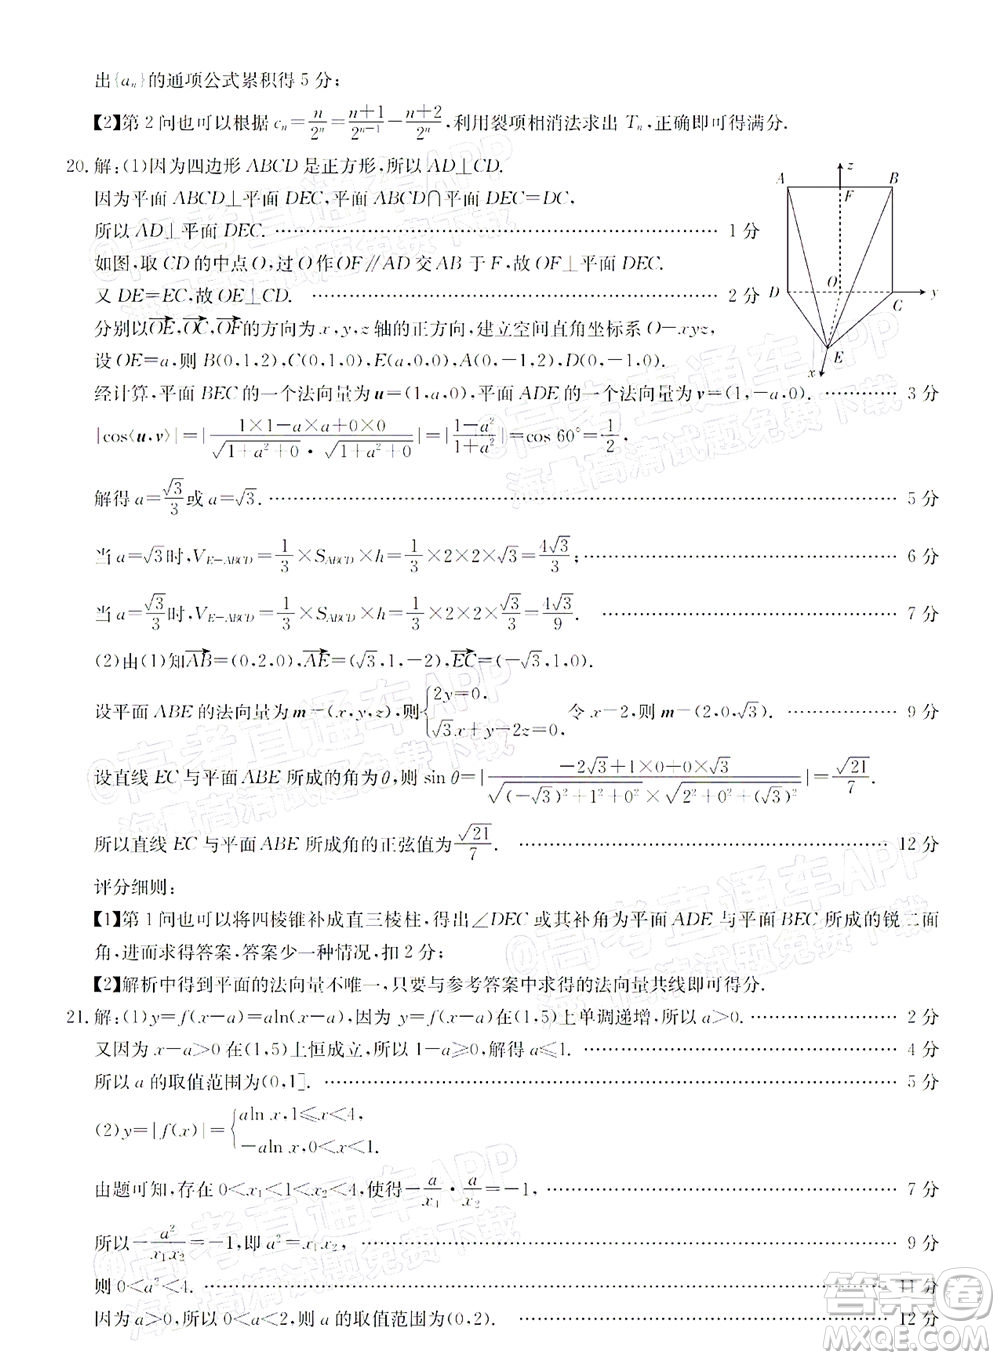 出{aₙ}的通项公式累积得 5 分;
【2】第 2 问也可以根据 cₙ=n/2ⁿ=(n+1)/2ⁿ⁻¹-(n+2)/2ⁿ,利用裂项相消法求出 Tₙ,正确即可得满分.
20. 解:(1)因为四边形 ABCD 是正方形,所以 AD⊥CD.
因为平面 ABCD⊥平面 DEC,平面 ABCD∩平面 DEC=DC,
所以 AD⊥平面 DEC. 1 分
如图,取 CD 的中点 O,过 O 作 OF∥AD 交 AB 于 F,故 OF⊥平面 DEC.
又 DE=EC,故 OE⊥CD. 2 分
z
A
F
B
D
O
C
y
x
E
分别以OE→,OC→,OF→的方向为 x,y,z 轴的正方向,建立空间直角坐标系 O-xyz,
设 OE=a,则 B(0,1,2),C(0,1,0),E(a,0,0),A(0,-1,2),D(0,-1,0).
经计算,平面 BEC 的一个法向量为 u=(1,a,0),平面 ADE 的一个法向量为 v=(1,-a,0). 3 分
|cos⟨u,v⟩|=|(1×1-a×a+0×0)/(√(1+a²+0)·√(1+a²+0))|=|(1-a²)/(1+a²)|=cos 60°=1/2,
解得 a=√3/3或 a=√3. 5 分
当 a=√3时,V_{E-ABCD}=1/3×S_{ABCD}×h=1/3×2×2×√3=4√3/3; 6 分
当 a=√3/3时,V_{E-ABCD}=1/3×S_{ABCD}×h=1/3×2×2×√3/3=4√3/9. 7 分
(2)由(1)知AB→=(0,2,0),AE→=(√3,1,-2),EC→=(-√3,1,0).
设平面 ABE 的法向量为 m=(x,y,z),则{2y=0, √3x+y-2z=0. 令 x=2,则 m=(2,0,√3). 9 分
设直线 EC 与平面 ABE 所成的角为 θ,则 sin θ=|(-2√3+1×0+0×√3)/(√((-√3)²+1²+0²)×√(2²+0²+(√3)²))|=√21/7.
所以直线 EC 与平面 ABE 所成角的正弦值为√21/7. 12 分
评分细则:
【1】第 1 问也可以将四棱锥补成直三棱柱,得出∠DEC 或其补角为平面 ADE 与平面 BEC 所成的锐二面
角,进而求得答案,答案少一种情况,扣 2 分;
【2】解析中得到平面的法向量不唯一,只要与参考答案中求得的法向量共线即可得分.
21. 解:(1)y=f(x-a)=aln(x-a),因为 y=f(x-a)在(1,5)上单调递增,所以 a>0. 2 分
又因为 x-a>0 在(1,5)上恒成立,所以 1-a≥0,解得 a≤1. 4 分
所以 a 的取值范围为(0,1]. 5 分
(2)y=|f(x)|={aln x,1≤x<4, -aln x,0<x<1.
由题可知,存在 0<x₁<1≤x₂<4,使得-a/x₁·a/x₂=-1, 7 分
所以-a²/(x₁x₂)=-1,即 a²=x₁x₂, 9 分
则 0<a²<4. 11 分
因为 a>0,所以 0<a<2,故 a 的取值范围为(0,2). 12 分
@高考直通车APP
海量高清试题免费下载
@高考直通车APP
海量高清试题免费下载
@高考直通车APP
海量高清试题免费下载
@高考直通车APP
海量高清试题免费下载
@高考直通车APP
海量高清试题免费下载
答案卷
MXQE.COM